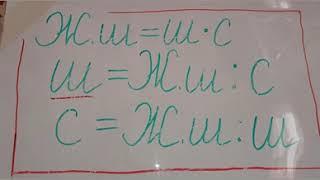 Ж.ш=ш·с
ш=Ж.ш:с
с=Ж.ш:ш